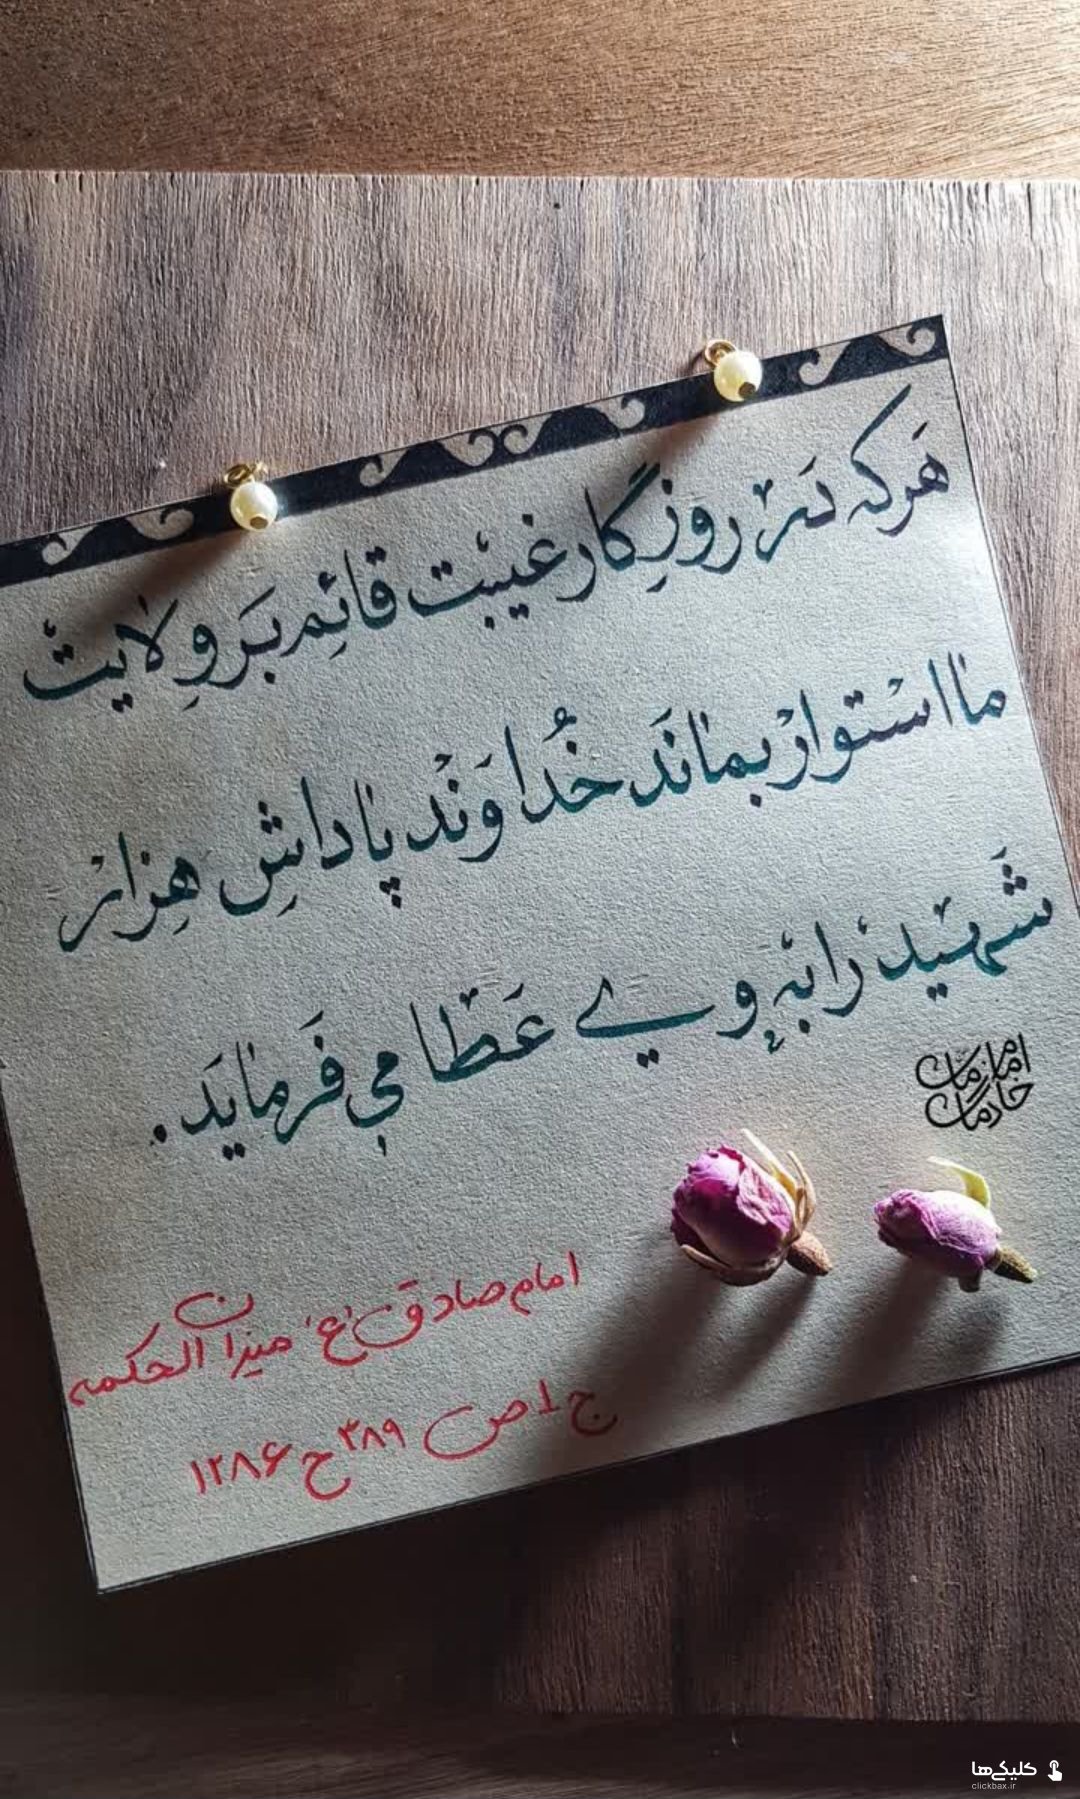 هَرکه دَر روزِگار غیبت قائِم بَر وِلایت
ما استوار بماند خُداوَند پاداشِ هِزار
شَهید را به وی عَطا می‌فَرمایَد.
امام زمان
خادمان
امام صادق (ع) میزان الحکمه
ج ۱ ص ۳۸۹ ح ۱۲۸۶
کلیکی‌ها
clickbax.ir